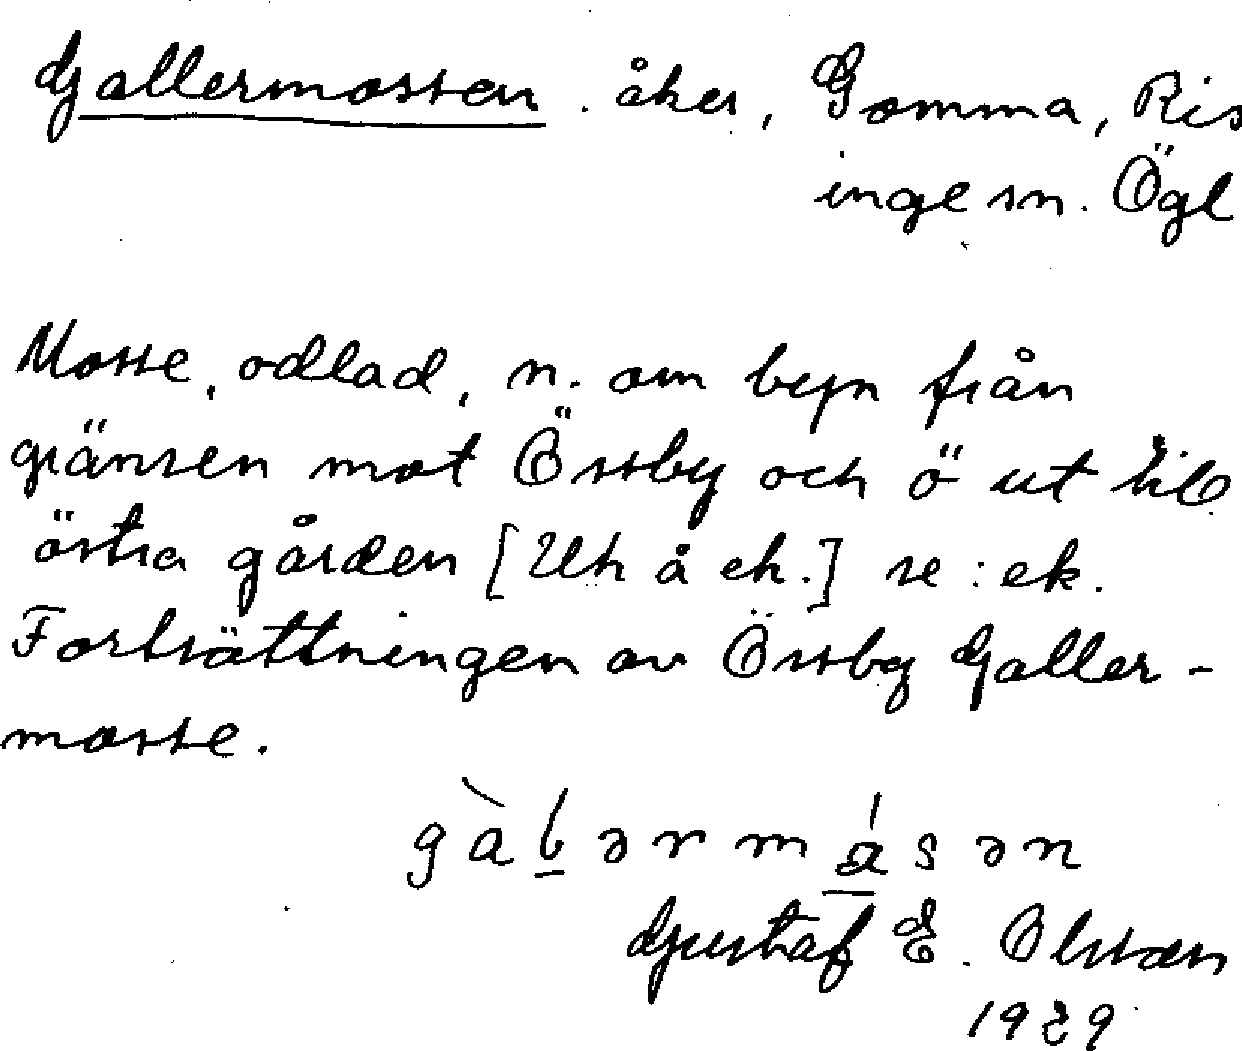 Gallermossen. åker, Gomma, Ris
inge sn. Ögl
Mosse, odlad, n. om byn från
gränsen mot Össby och ö ut till
östra gården [Uh å ek.] se: ek.
Fortsättningen av Össby Galler-
mosse.
gàlərmåsən
Gustaf E. Olsson
1929